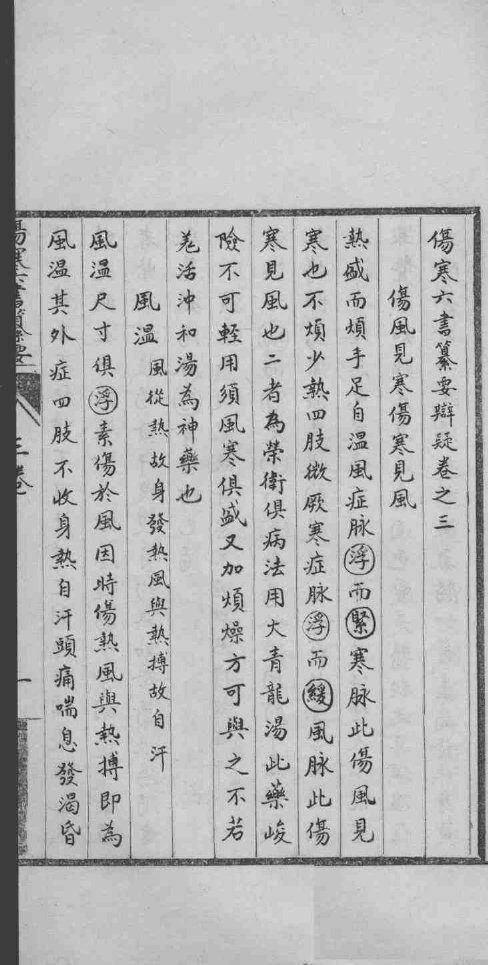 傷寒六書纂要辯疑卷之三
傷風見寒傷寒見風
熱盛而煩手足自温風症脉浮而緊寒脉此傷風見
寒也不煩少熱四肢微厥寒症脉浮而緩風脉此傷
寒見風也二者為榮衛俱病法用大青龍湯此藥峻
險不可輕用須風寒俱盛又加煩燥方可與之不若
羗活沖和湯為神藥也
風温 風從熱故身發熱風與熱搏故自汗
風温尺寸俱浮素傷於風因時傷熱風與熱搏即為
風温其外症四肢不收身熱自汗頭痛喘息發渴昏
傷寒六書纂要
三卷
一